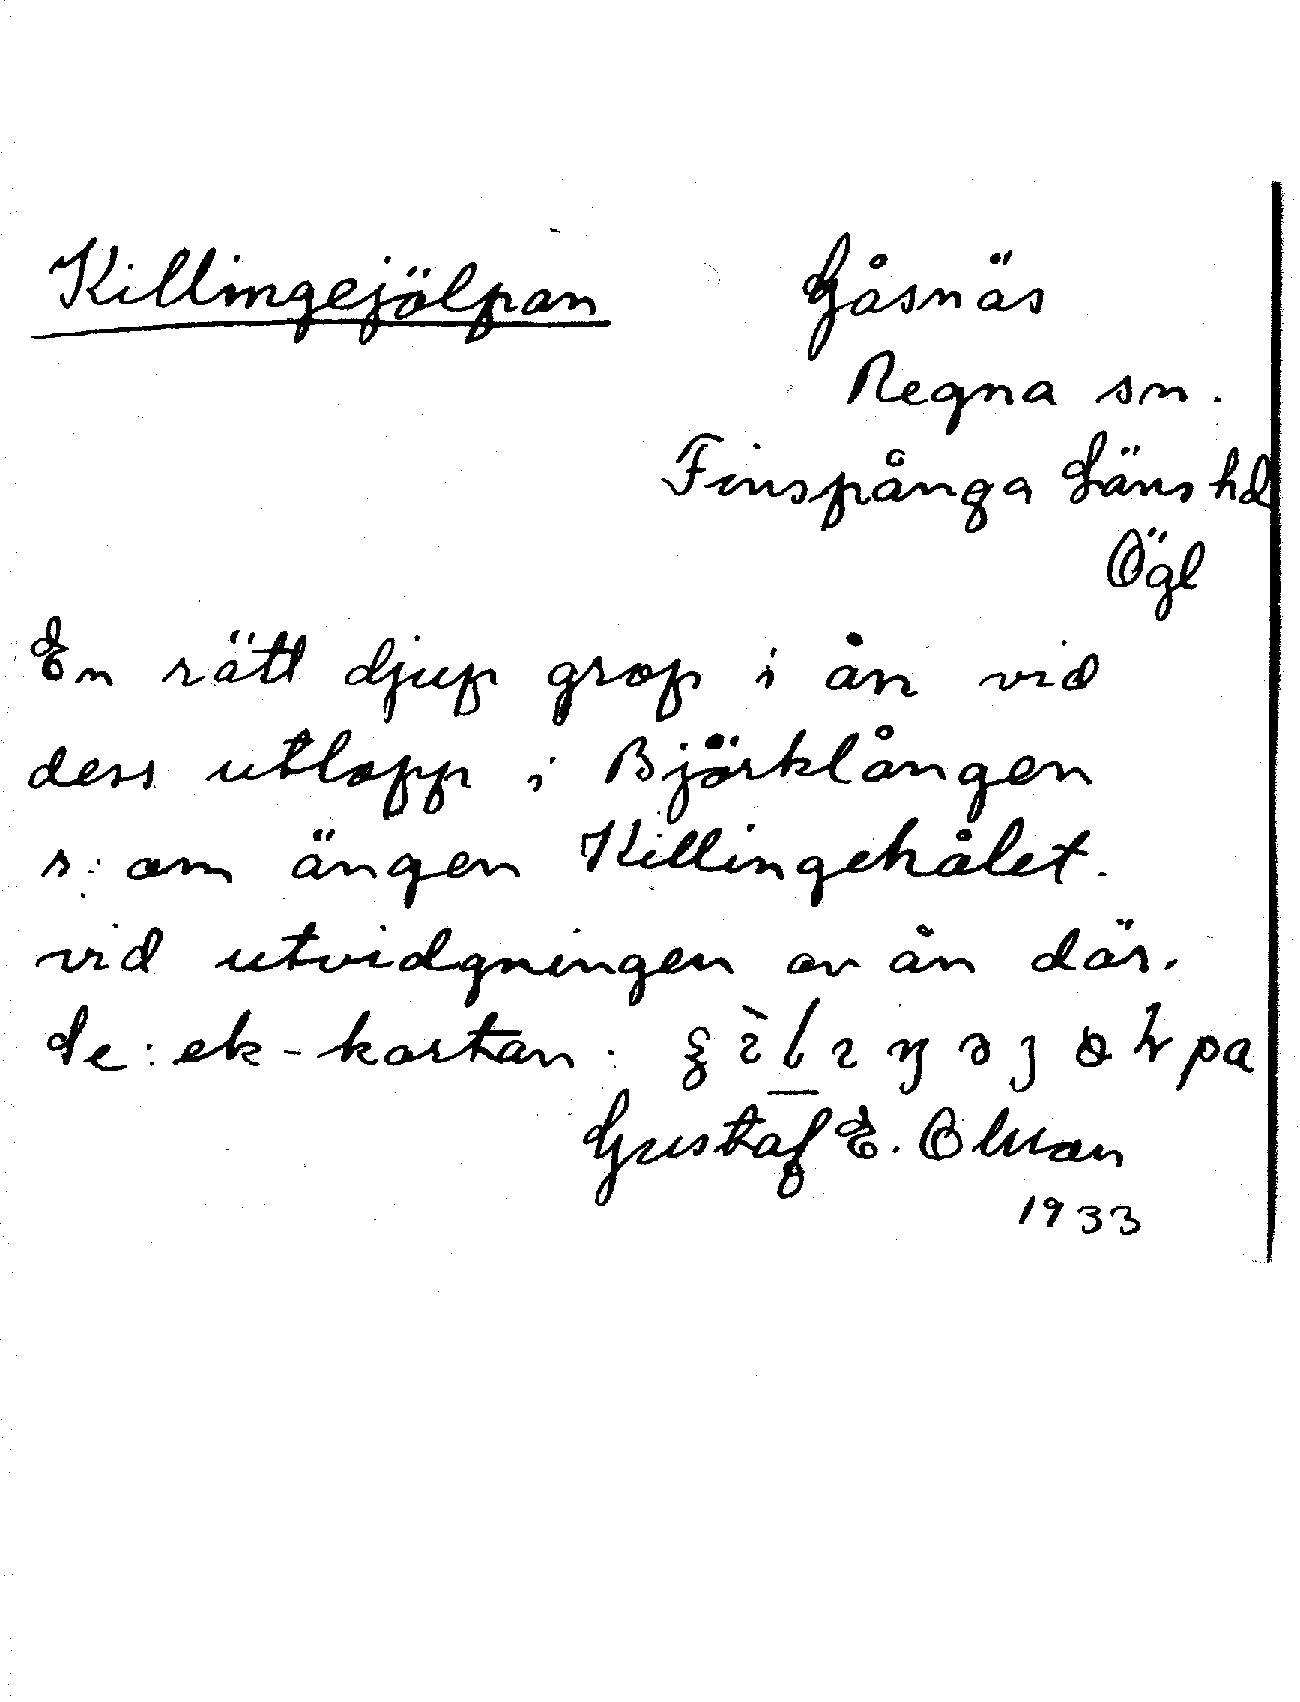 Killingejölpan
Gåsnäs
Regna sn.
Finspånga Läns hd
Ögl
En rätt djup grop i ån vid
dess utlopp i Björklången
s: om ängen Killingehålet.
vid utvidgningen av ån där.
Se: ek-kartan.
Gustaf E. Olsson
1933